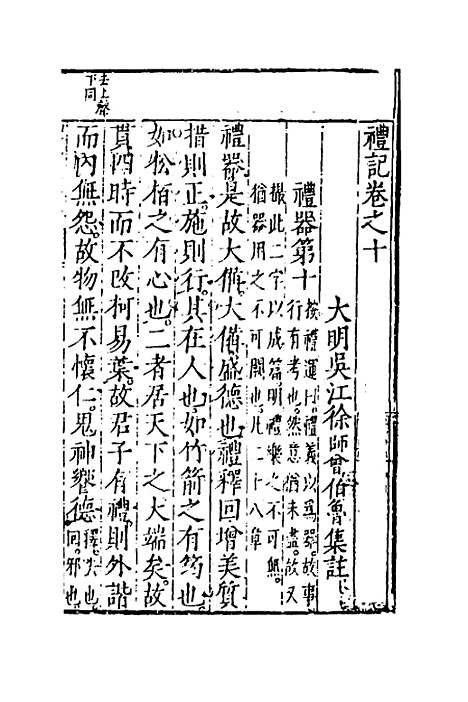 禮記卷之十
大明吳江徐師曾伯魯集註
禮器第十
按禮運曰禮義以爲器故事
行有考也然意猶未盡故又
撮此二字以成篇明禮樂之不可無
猶器用之不可闕也凡二十八章
禮器是故大備大備盛德也禮釋回增美質
措則正施則行其在人也如竹箭之有筠也
如松柏之有心也二者居天下之大端矣故
貫四時而不改柯易葉故君子有禮則外諧
而內無怨故物無不懷仁鬼神饗德
釋去也
回邪也
去上聲
下同